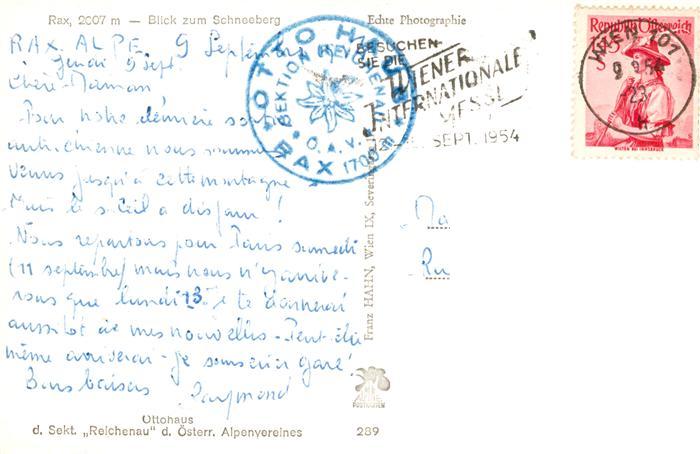 Rax, 2007 m — Blick zum Schneeberg
Echte Photographie
RAX. ALPE 9 Septembre
Jeudi 9 Sept
Chère Maman
Pour notre dernière sortie
autrichienne nous sommes
venus jusqu'à cette montagne
Mais le soleil a disparu !
Nous repartons pour Paris samedi
(11 septembre) mais nous n'y arrive-
rons que lundi 13. Je te donnerai
aussitôt de mes nouvelles - Peut-être
même arriverai-je sans gare!
Bons baisers Raymond
Ottohaus
d. Sekt. „Reichenau" d. Österr. Alpenvereines
289
OTTO HAUS
SEKTION REICHENAU
Ö.A.V.
RAX 1700 m
BESUCHEN
SIE DIE
WIENER
INTERNATIONALE
MESSE
SEPT. 1954
Republik Österreich
WIEN 101
9.9.54
-23
WILTEN BEI INNSBRUCK
Franz HAHN, Wien IX, Severin
Ma
POSTKARTEN